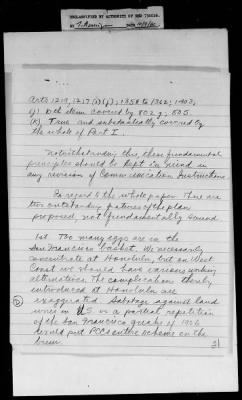 DECLASSIFIED BY AUTHORITY OF
By
Arts 1219, 1217 (2)(f); 1358 to 1362; 1403;
(j) 10th item covered by 502 g; 505.
(k) True and substantially covered by
the whole of Part I
Notwithstanding this, these fundamental
principles should be kept in mind in
any revision of Communication Instructions
As regard to the whole paper There are
two outstanding features of the plan
proposed, not fundamentally sound
1st Too many eggs are in the
San Francisco basket. We necessarily
concentrate at Honolulu, but on West
Coast we should have various working
alternatives. The complications thereby
introduced at Honolulu are
exaggerated. Sabotage against land
wires in US or a partial repetition
of the San Francisco quake of 1906
would put PCC's entire scheme on the
bum.
2